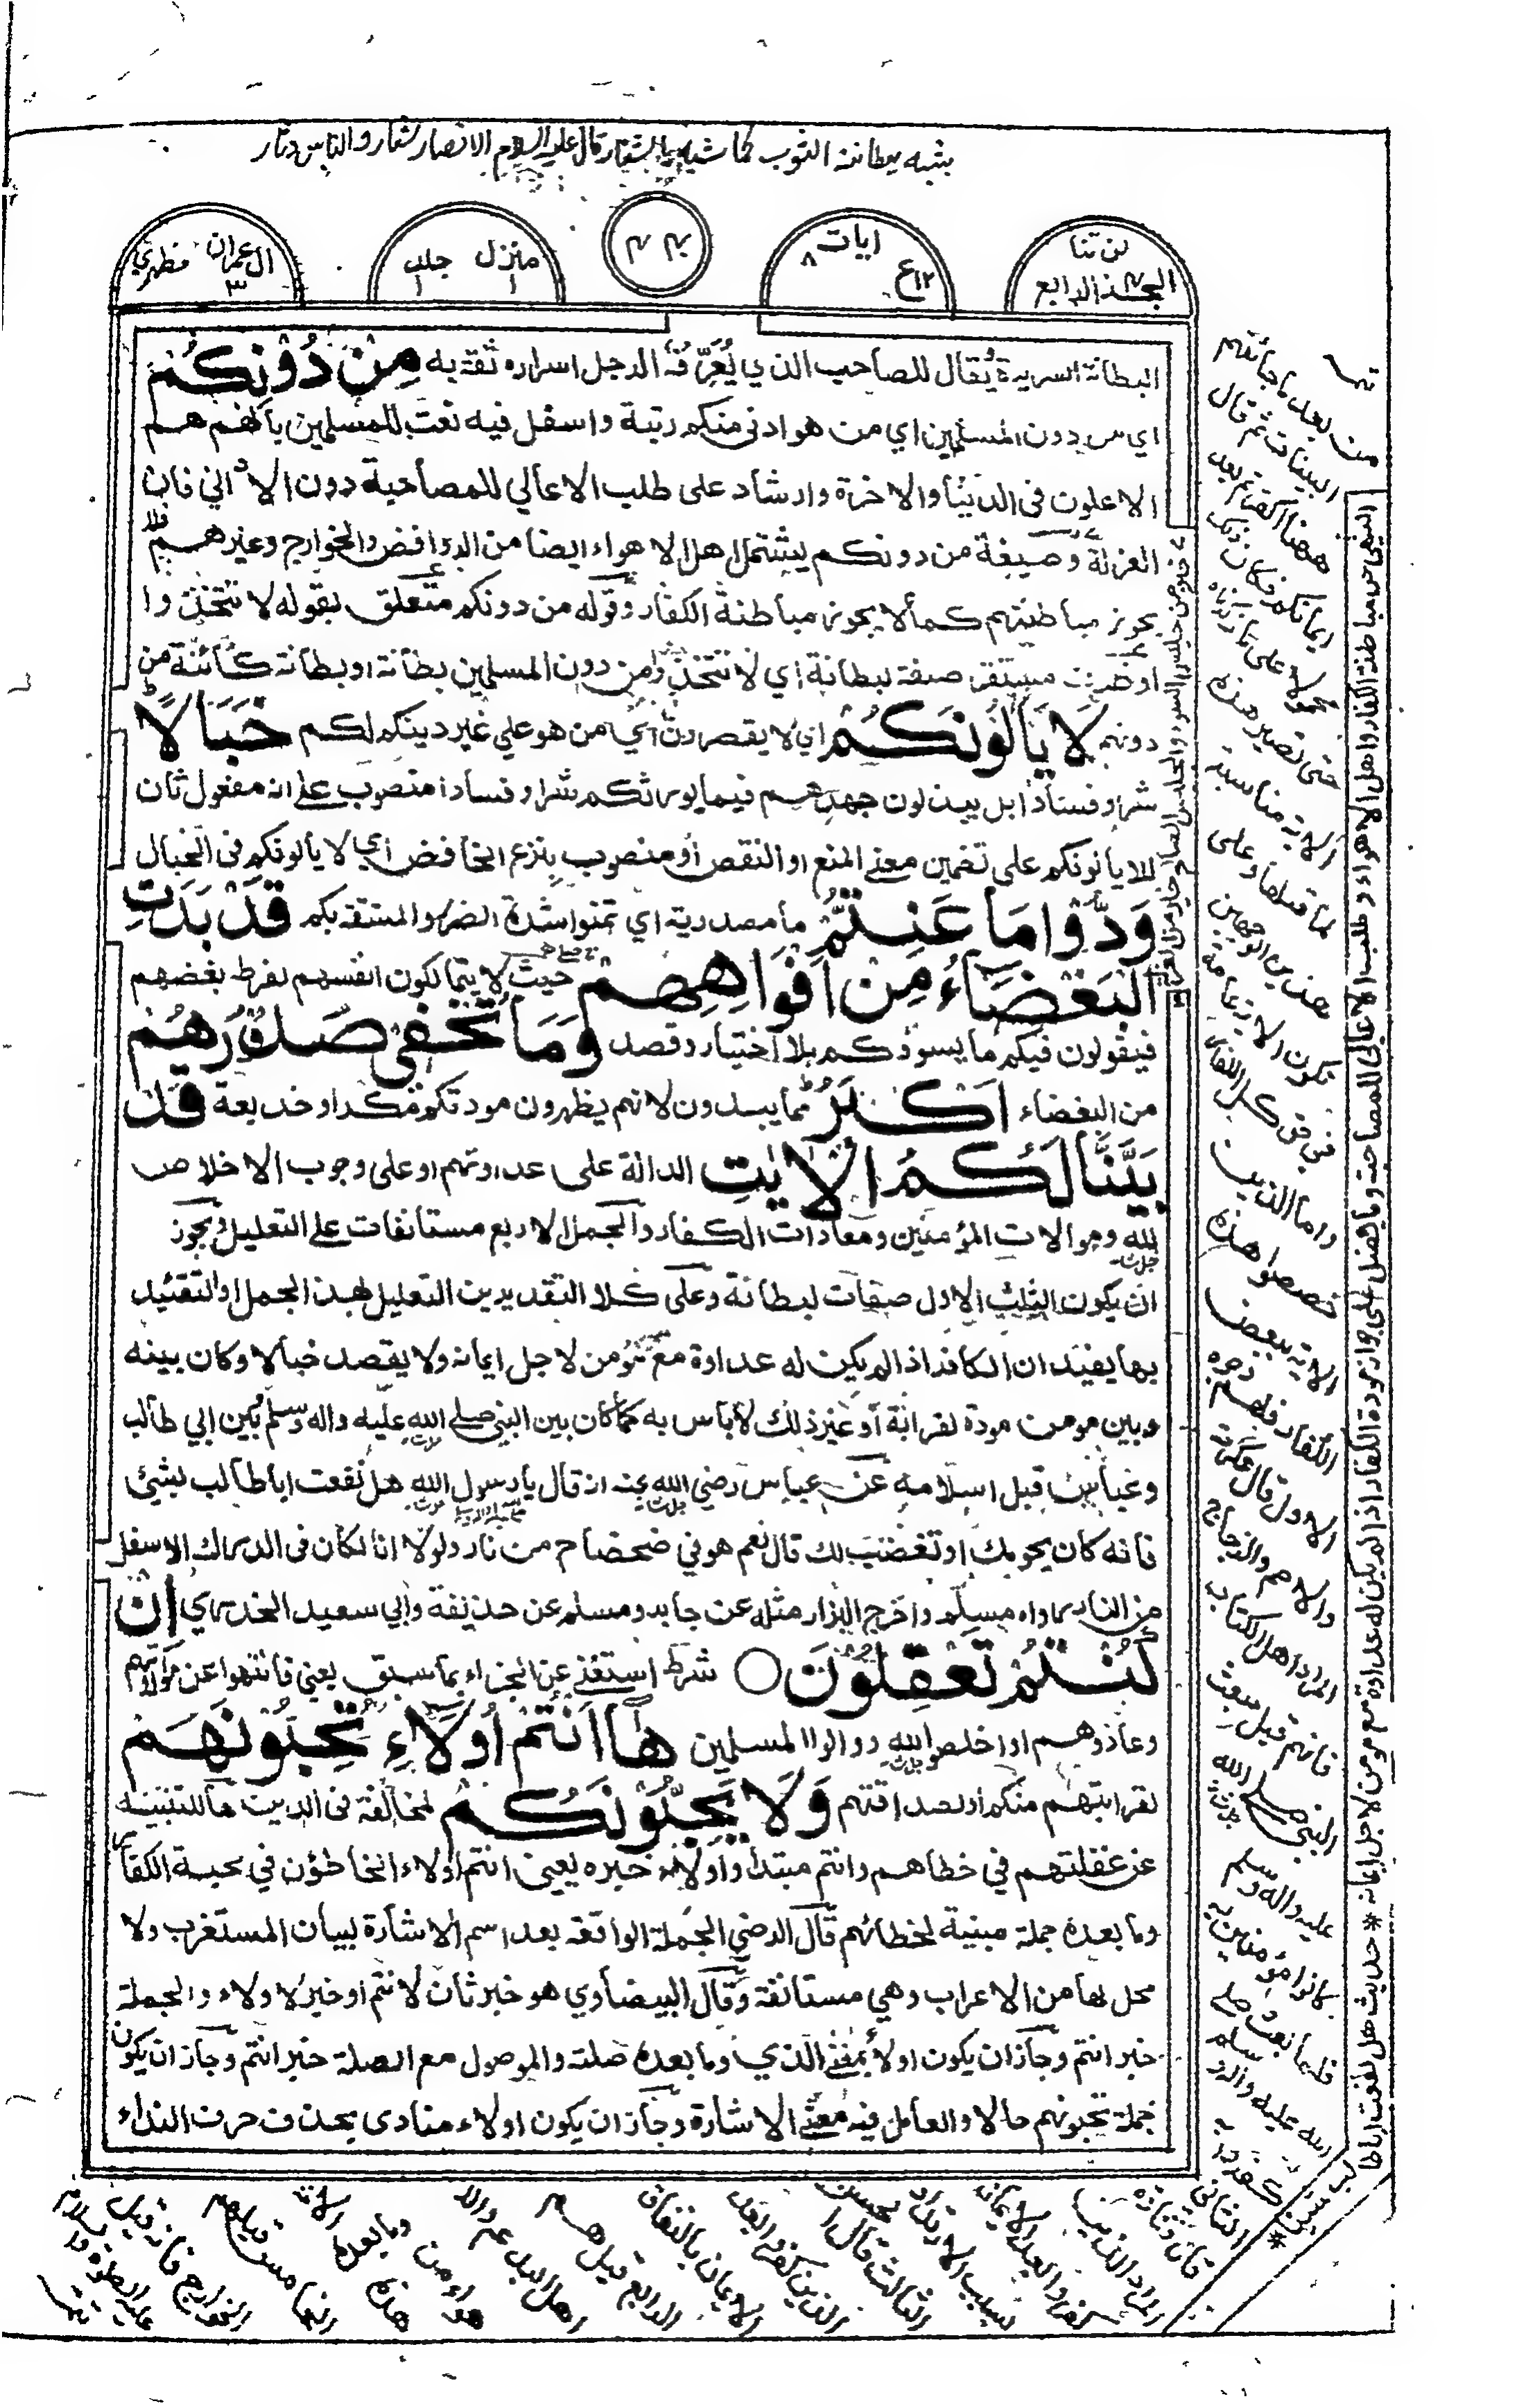 يشبه ببطانة الثوب كما شبه بالشعار قال عليه السلام الانصار شعار والناس دثار
لن تنا
الجزء الرابع
ايات ٨
ع ١٢
منزل ١
جلد ١
ال عمران ٣
مظهري
البطانة السريرة يُقال للصاحب الذي يُعَرِّفُه الرجل اسراره ثقة به مِنْ دُوْنِكُمْ
اي من دون المسلمين اي من هو ادنى منكم رتبة واسفل فيه نعت للمسلمين بانهم هم
الاعلون فى الدنيا والاخرة وارشاد على طلب الاعالي للمصاحبة دون الاداني فان
العزلة وصيغة من دونكم يشتمل اهل الاهواء ايضا من الروافض والخوارج وغيرهم فلا
يجوز مباطنتهم كما لا يجوز مباطنة الكفار وقوله من دونكم متعلق بقوله لا تتخذوا
او ظرف مستقر صفة لبطانة اي لا تتخذوا من دون المسلمين بطانة او بطانة كائنة من
دونهم لَا يَأْلُوْنَكُمْ اي لا يقصرون اي من هو على غير دينكم لكم خَبَالًا
شرا وفسادا بل يبذلون جهدهم فيما يورثكم شرا وفسادا منصوب على انه مفعول ثان
للايألونكم على تضمين معنى المنع او النقص او منصوب بنزع الخافض اي لا يألونكم فى الخبال
وَدُّوْا مَا عَنِتُّمْ ما مصدرية اي تمنوا شدة الضر والمشقة بكم قَدْ بَدَتِ
الْبَغْضَآءُ مِنْ اَفْوَاهِهِمْ حيث لا يتمالكون انفسهم لفرط بغضهم
فيقولون فيكم ما يسوؤكم بلا اختيار وقصد وَمَا تُخْفِيْ صُدُوْرُهُمْ
من البغضاء اَكْبَرُ مما يبدون لانهم يظهرون مودتكم مكرا وخديعة قَدْ
بَيَّنَّا لَكُمُ الْاٰيٰتِ الدالة على عداوتهم او على وجوب الاخلاص
لله وموالات المؤمنين ومعادات الكفار والجمل الاربع مستانفات على التعليل ويجوز
ان يكون الثلث الاول صفات لبطانة وعلى كلا التقديرين التعليل بهذه الجمل او التقئيد
بها يفيد ان الكافر اذا لم يكن له عداوة مع مؤمن لاجل ايمانه ولا يقصد خبالا وكان بينه
وبين مومن مودة لقرابة او غير ذلك لا باس به كما كان بين النبي صلى الله عليه واله وسلم وبين ابي طالب
وعباس قبل اسلامه عن عباس رضي الله عنه انه قال يا رسول الله هل نفعت ابا طالب بشيئ
فانه كان يحوطك او تغضب لك قال نعم هو في ضحضاح من نار ولولا انا لكان فى الدرك الاسفل
من النار رواه مسلم واخرج البزار مثله عن جابر ومسلم عن حذيفة وابي سعيد الخدري اِنْ
كُنْتُمْ تَعْقِلُوْنَ ○ شرط استغنى عن الجزاء بما سبق يعني فانتهوا عن موالاتهم
وعادوهم او اخلصوا لله ووالوا المسلمين هٰٓا اَنْتُمْ اُولَآءِ تُحِبُّوْنَهُمْ
لقرابتهم منكم او لصداقتهم وَلَا يُحِبُّوْنَكُمْ لمخالفة فى الدين ها للتنبيه
عن غفلتهم في خطاهم وانتم مبتدأ واولاء خبره يعنى انتم اولاء الخاطؤن في محبة الكفار
وما بعده جملة مبنية لخطائهم قال الرضي الجملة الواقعة بعد اسم الاشارة لبيان المستغرب ولا
محل لها من الاعراب وهي مستانفة وقال البيضاوي هو خبر ثان لانتم او خبر لاولاء والجملة
خبر انتم وجاز ان يكون اولاء بمعنى الذي وما بعده صلته والموصول مع الصلة خبر انتم وجاز ان يكون
جملة تحبونهم حالا والعامل فيه معنى الاشارة وجاز ان يكون اولاء منادى بحذف حرف النداء
خير من جليس السوء والجليس الصالح خير من العزلة
النهي عن مباطنة الكفار واهل الاهواء وطلب الاعالى للمصاحبة وما فضل الى جواز مودة الكفار اذا لم يكن له عداوة مع مومن لاجل ايمانه * حديث هل نفعت ابا طالب بشيئ *
من بعد ما جائهم
البينات ثم قال
ههنا اكفرتم بعد
ايمانكم فكان ذلك
محمولا على ما ذكرناه
حتى تصير هذه
الاية مناسبة
لما قبلها وعلى
هذين الوجهين
يكون الاية عامة
في حق كل الكفار
واما الذين
خصصوا هذه
الاية ببعض
الكفار فلهم وجوه
الاول قال عكرمة
والاصم والزجاج
المراد اهل الكتاب
فانهم قبل مبعث
النبي صلى الله
عليه واله وسلم
كانوا مؤمنين به
فلما بعث صلى
الله عليه واله وسلم
كفروا به
الثاني
قال قتادة
المراد الذين
كفروا بعد الايمان
بسبب الارتداد
الثالث قال الحسن
الذين كفروا بعد
الايمان بالنفاق
الرابع قيل هم
اهل البدع والا
هواء من
هذه الامة
الخامس قيل هم
الخوارج فانه قيل
عليه الصلوة والسلام